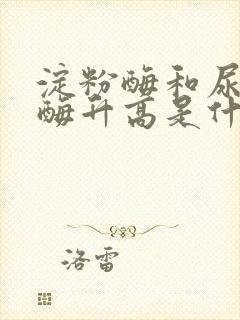 淀粉酶和尿
酶升高是什
洛雷